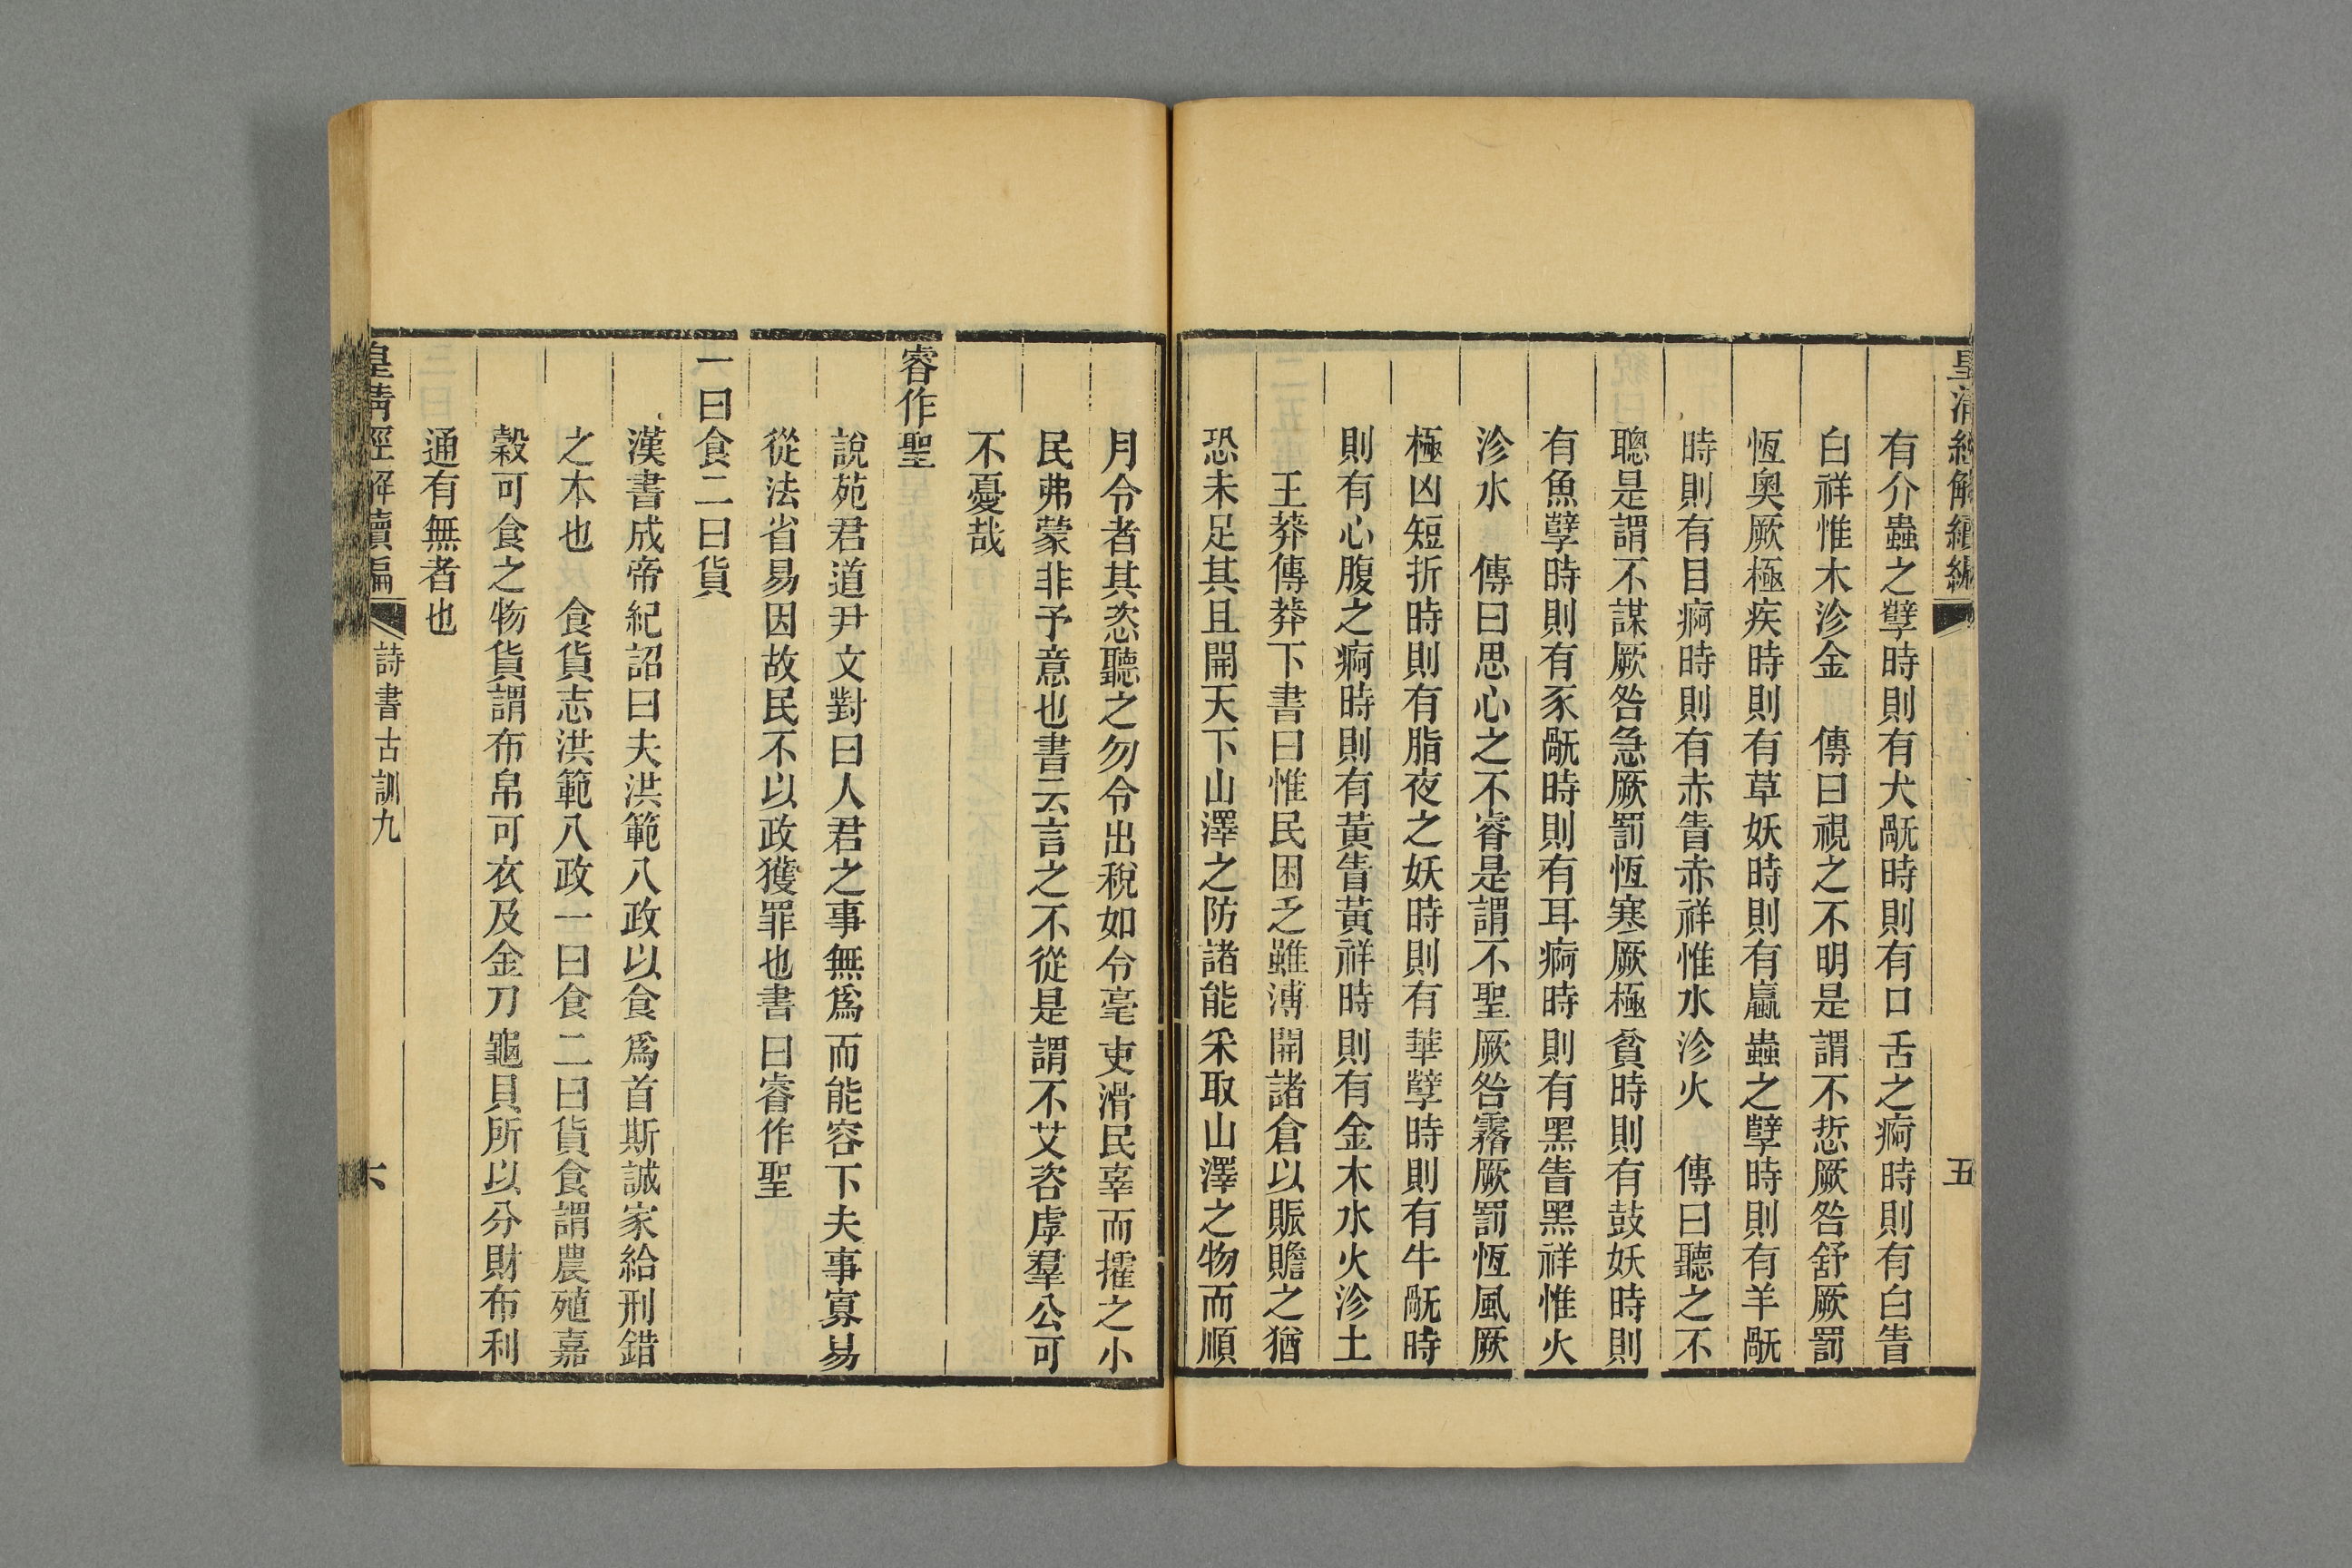 皇清經解續編
五
有介蟲之孼時則有犬𤡬時則有口舌之痾時則有白眚
白祥惟木沴金　傳曰視之不明是謂不悊厥咎舒厥罰
恆奧厥極疾時則有草妖時則有蠃蟲之孼時則有羊𤡬
時則有目痾時則有赤眚赤祥惟水沴火　傳曰聽之不
聰是謂不謀厥咎急厥罰恆寒厥極貧時則有鼓妖時則
有魚孼時則有豕𤡬時則有耳痾時則有黑眚黑祥惟火
沴水　傳曰思心之不睿是謂不聖厥咎霿厥罰恆風厥
極凶短折時則有脂夜之妖時則有華孼時則有牛𤡬時
則有心腹之痾時則有黃眚黃祥時則有金木水火沴土
王莽傳莽下書曰惟民困乏雖溥開諸倉以賑贍之猶
恐未足其且開天下山澤之防諸能采取山澤之物而順
月令者其恣聽之勿令出稅如令毫吏滑民辜而攉之小
民弗蒙非予意也書云言之不從是謂不艾咨虖羣公可
不憂哉
睿作聖
說苑君道尹文對曰人君之事無爲而能容下夫事寡易
從法省易因故民不以政獲罪也書曰睿作聖
一曰食二曰貨
漢書成帝紀詔曰夫洪範八政以食爲首斯誠家給刑錯
之本也　食貨志洪範八政一曰食二曰貨食謂農殖嘉
穀可食之物貨謂布帛可衣及金刀龜貝所以分財布利
通有無者也
皇清經解續編
詩書古訓九
六